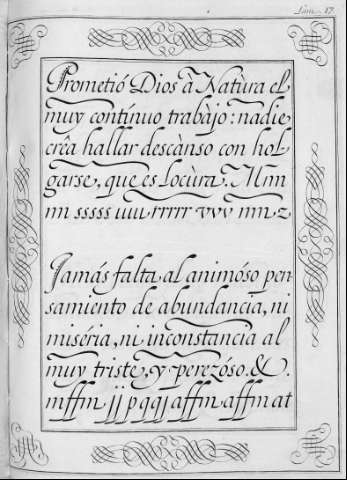 Lám. 17.
Prometió Dios à Natùra el
muy contínuo trabàjo: nadie
crêa hallar descànso con hol
garse, que es locùra. Mmn
mn sssss uuu rrrrr vvv mn z
Jamás falta al animóso pen
samiento de abundancia, ni
miséria, ni inconstancia al
muy triste, y perezóso. &.
mffm jj p qqj affm affm at